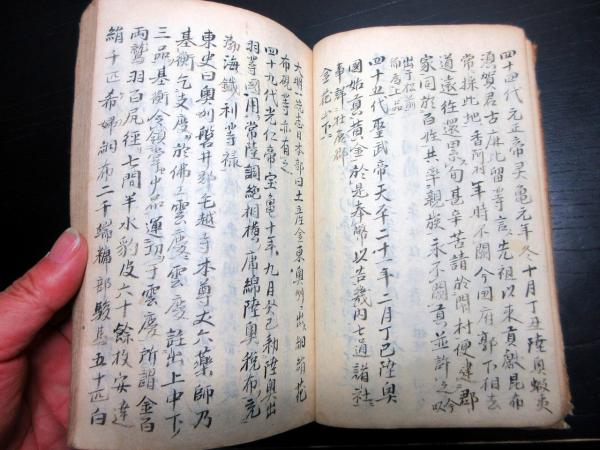 四十四代元正帝灵亀元年冬十月丁丑陸奥蝦夷
須賀君古麻比留等言先祖以来貢献昆布
常採此地香河村年時不闕今國府郭下相去
道遠往還累旬甚辛苦請於閇村便建郡
家同於百姓共率親族永不闕貢並許之
四十五代聖武帝天平二十一年二月丁巳陸奥
國始貢黄金於是奉幣以告畿内七道諸社
牡鹿郡
金花山下
大明一統志日本部曰土産金東奥州ニ出ス細絹花
布硯等亦有之
四十九代光仁帝宝亀十年九月癸巳勅陸奥出
羽等國用常陸調絁相模庸綿陸奥税布充
渤海鐵利等禄
東史曰奥州磐井郡毛越寺本尊丈六藥師乃
基衡乞支度於佛工雲慶雲慶註出上中下
三品基衡令領掌中品運功于雲慶所謂金百
両鷲羽百尻径七間半水豹皮六十餘枚安達
絹千匹希婦細布二千端糠部駿馬五十匹白